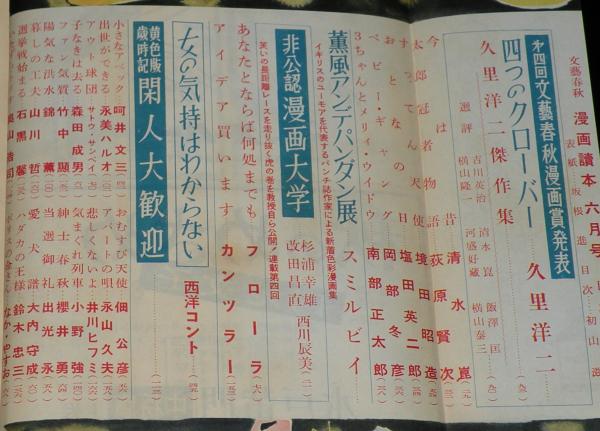 文藝春秋 漫画讀本 六月号
表紙 坂根進 目次 初山滋
第四回文藝春秋漫画賞発表
四つのクローバー 久里洋二
久里洋二傑作集
選評 横山隆一 吉川英治 河盛好蔵 清水崑 横山泰三 飯澤匡
今は昔 清水崑
太郎冠者物語 荻原賢次
すてな天使 境田昭造
おとなの日 塩田英二郎
ベビー・ギャング 岡部冬彦
3ちゃんとメリイ・ウイドウ 南部正太郎
薫風アンデパンダン展 スミルビイ
イギリスのユーモアを代表するパンチ誌作家による新着色彩漫画集
非公認漫画大学 杉浦幸雄 改田昌直 西川辰美
笑いの長距離レースを走り抜く虎の巻を教授自ら公開!連載第四回
あなたとならば何処までも フローラ
アイデア買います カンツラー
女の気持はわからない 西洋コント
黄色版歳時記 閑人大歓迎
小さなアベック 呵井文三
出世ができる 永美ハルオ
アウト球団 サトウ・サンペイ
子なきは去る 森田成男
ファン気質 竹中顕
陽気な洪水 錦薫
暮しの工夫 山川哲
選挙戦始まる 石黒馨
おむすび天使 佃公彦
アパートの唄 永山久夫
悲しくないよ 井川ヒフミ
気まぐれ列車 小野強
紳士春秋 櫻井勇
当選御礼 出光永
愛犬譜 大内守成
ハダカの王様 鈴木忠三